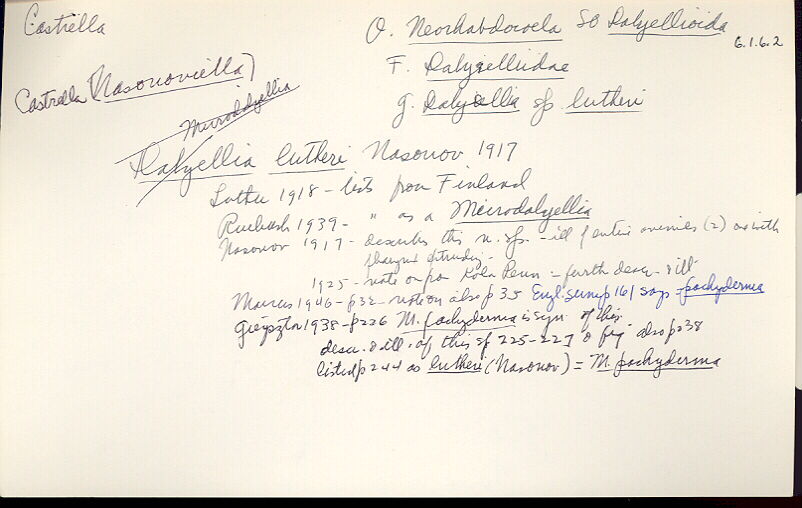 Castrella
O. Neorhabdocoela SO Dalyellioida
6.1.6.2
F. Dalyelliidae
Castrella (Nasonoviella)
g. Dalyellia sp lutheri
Microdalyellia
Dalyellia lutheri Nasonov 1917
Luther 1918 - lists from Finland
Ruebush 1939 - " as a Microdalyellia
Nasonov 1917 - describes this n. sp. - ill of entire animies (2) one with
pharynx protruding -
1925 - note on from Kola Penn - furth descr. & ill
Marcus 1946 - p32 - note on also p35 Engl. summ p161 says - pachyderma
Gieysztor 1938 - p226 M. pachyderma is syn. of this
descr. & ill. of this sp 225-227 & fig also p238
listed p244 as lutheri (Nasonov) = M. pachyderma